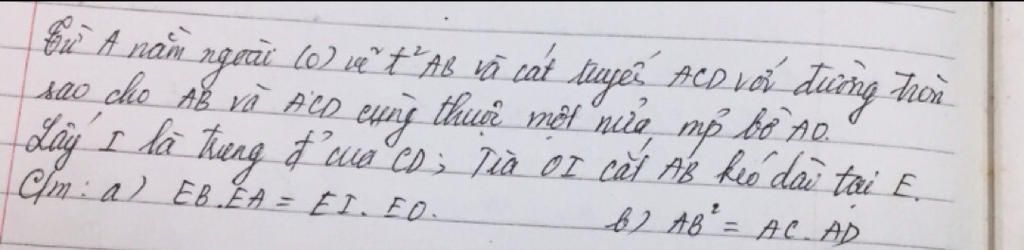 Từ A nằm ngoài (O) vẽ t² AB và cát tuyến ACD với đường tròn
sao cho AB và ACD cùng thuộc một nửa mp bờ AO.
Lấy I là trung đ' của CD; Tia OI cắt AB kéo dài tại E.
C/m: a) EB.EA = EI.EO. b) AB² = AC.AD